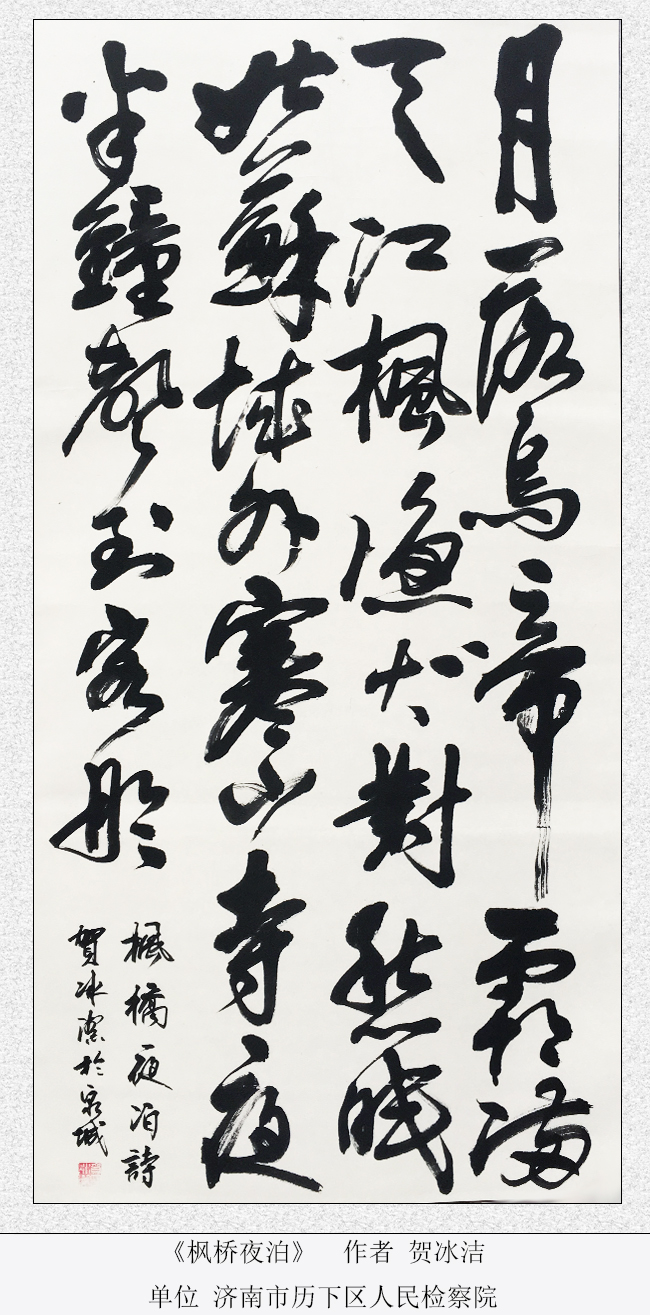 月落烏啼霜滿
天江楓漁火對愁眠
姑蘇城外寒山寺夜
半鐘聲到客船
楓橋夜泊詩
賀冰潔於泉城
《枫桥夜泊》 作者 贺冰洁
单位 济南市历下区人民检察院